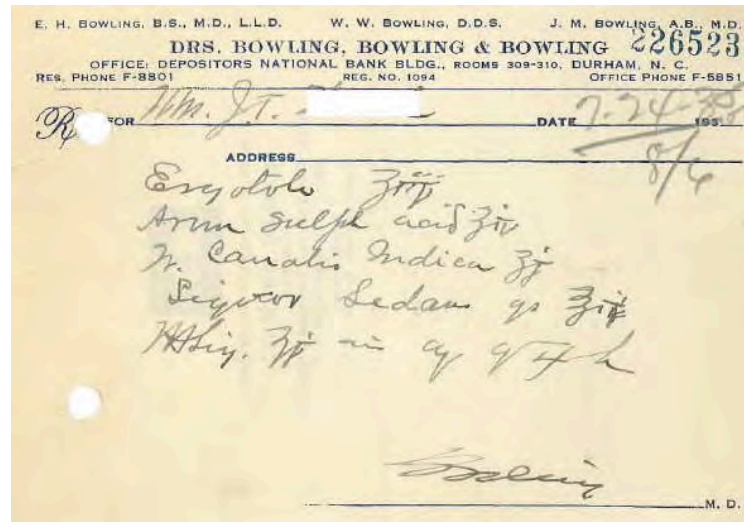 E. H. BOWLING, B.S., M.D., L.L.D. W. W. BOWLING, D.D.S. J. M. BOWLING, A.B., M.D.
DRS. BOWLING, BOWLING & BOWLING 226523
OFFICE: DEPOSITORS NATIONAL BANK BLDG., ROOMS 309-310, DURHAM, N. C.
RES. PHONE F-8801 REG. NO. 1094 OFFICE PHONE F-5851
℞ FOR J. T. DATE 7-24-38 193
ADDRESS 8/6
Ergotole ʒ
Arom Sulph acid ʒiv
Canabis Indica ʒj
Liquor Sedans qs ʒ
Sig. ʒj in aq q 4 h
Bowling
M. D.